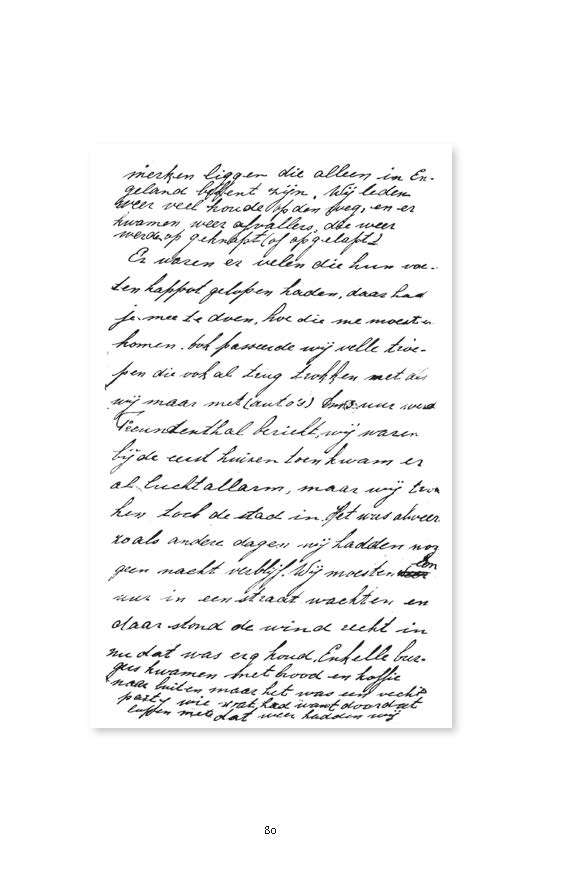 merken liggen die alleen in En-
geland bekent zijn. Wij leden
weer veel houde op den weg, en er
kwamen weer afvallers, die weer
werde op geknapt (of opgelapt)
Er waren er velen die hun voe-
ten kappot gelopen hadden, daar had
je mee te doen, hoe die me moesten
komen. Ook passeerde wij velle troe-
pen die ook al trug trokken met als
wij maar met (auto's) uur werd
Freundenthal bericht, wij waren
bij de eerst huizen toen kwam er
al luchtallarm, maar wij trok
ken toch de stad in. Het was alweer
zoals andere dagen wij hadden nog
geen nacht verblijf. Wij moesten Een
uur in een straat wachten en
daar stond de wind recht in
nu dat was erg houd. Enkelle bur-
gers kwamen met brood en koffie
naar buiten, maar het was een vecht
party wie wat had want doordat
met dat weer hadden wij
80